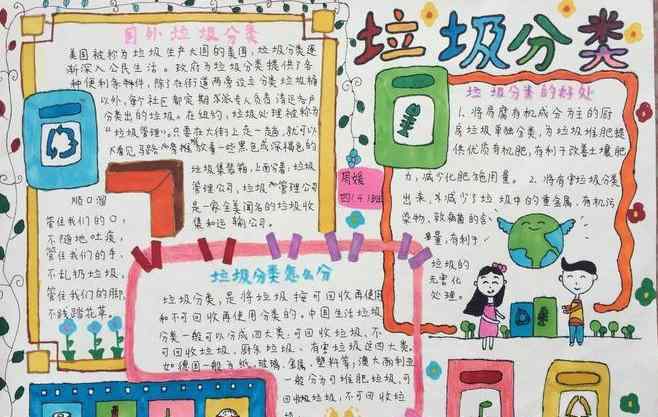 垃圾分类
国外垃圾分类
美国被称为垃圾生产大国的美国,垃圾分类逐
渐深入公民生活。政府为垃圾分类提供了各
种便利条件,除了在街道两旁设立分类垃圾桶
以外,每个社区都定期派专人负责清运各户
分类出的垃圾。在纽约,垃圾处理被称为
“垃圾管理”。只要在大街上走一走,就可以
着一些黑色或深褐色的
垃圾集装箱,上面分着:垃圾
管理公司,垃圾管理公司
是一家全美闻名的垃圾收
集和运输公司。
顺口溜
管住我们的口,
不随地吐痰,
管住我们的手,
不乱扔垃圾,
管住我们的脚,
不践踏花草。
周媛
四(4)班
垃圾分类的好处
1.将易腐有机成分为主的厨
房垃圾单独分类,为垃圾堆肥提
供优质有机肥,有利于改善土壤肥
力,减少化肥施用量。2.将有害垃圾分类
出来,减少了垃圾中的重金属,有机污
染物,致病菌的含
量,有利于
垃圾的
无害化
处理。
垃圾分类怎么分
垃圾分类,是将垃圾按可回收再使用
和不可回收再使用分类的。中国生活垃圾
分类一般可以分成四大类:可回收垃圾、不
可回收垃圾、厨余垃圾、有害垃圾这四大类。
如德国一般为纸、玻璃、金属、塑料等;澳大利亚
一般分为可堆肥垃圾,可
回收垃圾,不可回收垃
圾。